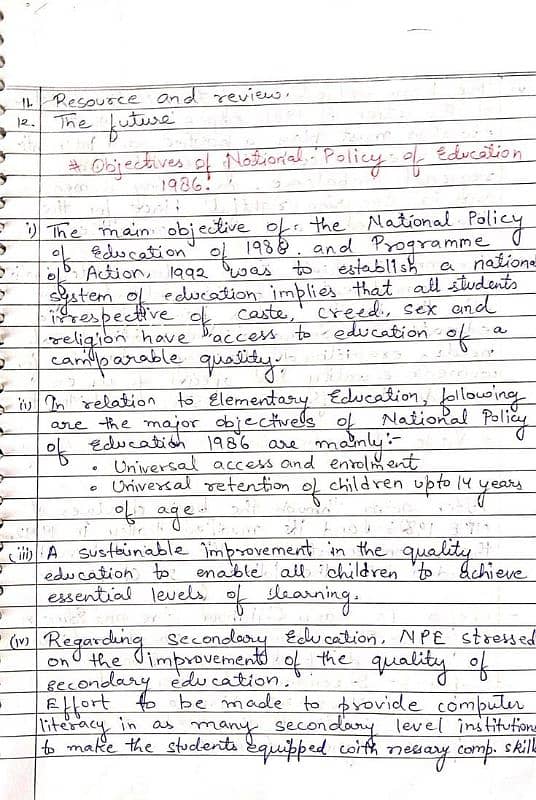 11. Resource and review.
12. The future
* Objectives of National Policy of Education
1986.
i) The main objective of the National Policy
of Education of 1986 and Programme
of Action, 1992 was to establish a nationa
system of education implies that all students
irrespective of caste, creed, sex and
religion have access to education of a
camparable quality.
ii) In relation to Elementary Education, following
are the major objectives of National Policy
of Education 1986 are mainly:-
• Universal access and enrolment
• Universal retention of children upto 14 years
of age.
(iii) A sustainable improvement in the quality
education to enable all children to achieve
essential levels of learning.
(iv) Regarding Secondary Education, NPE stressed
on the improvement of the quality of
secondary education.
Effort to be made to provide computer
literacy in as many secondary level institutions
to make the students equipped with nessary comp. skill